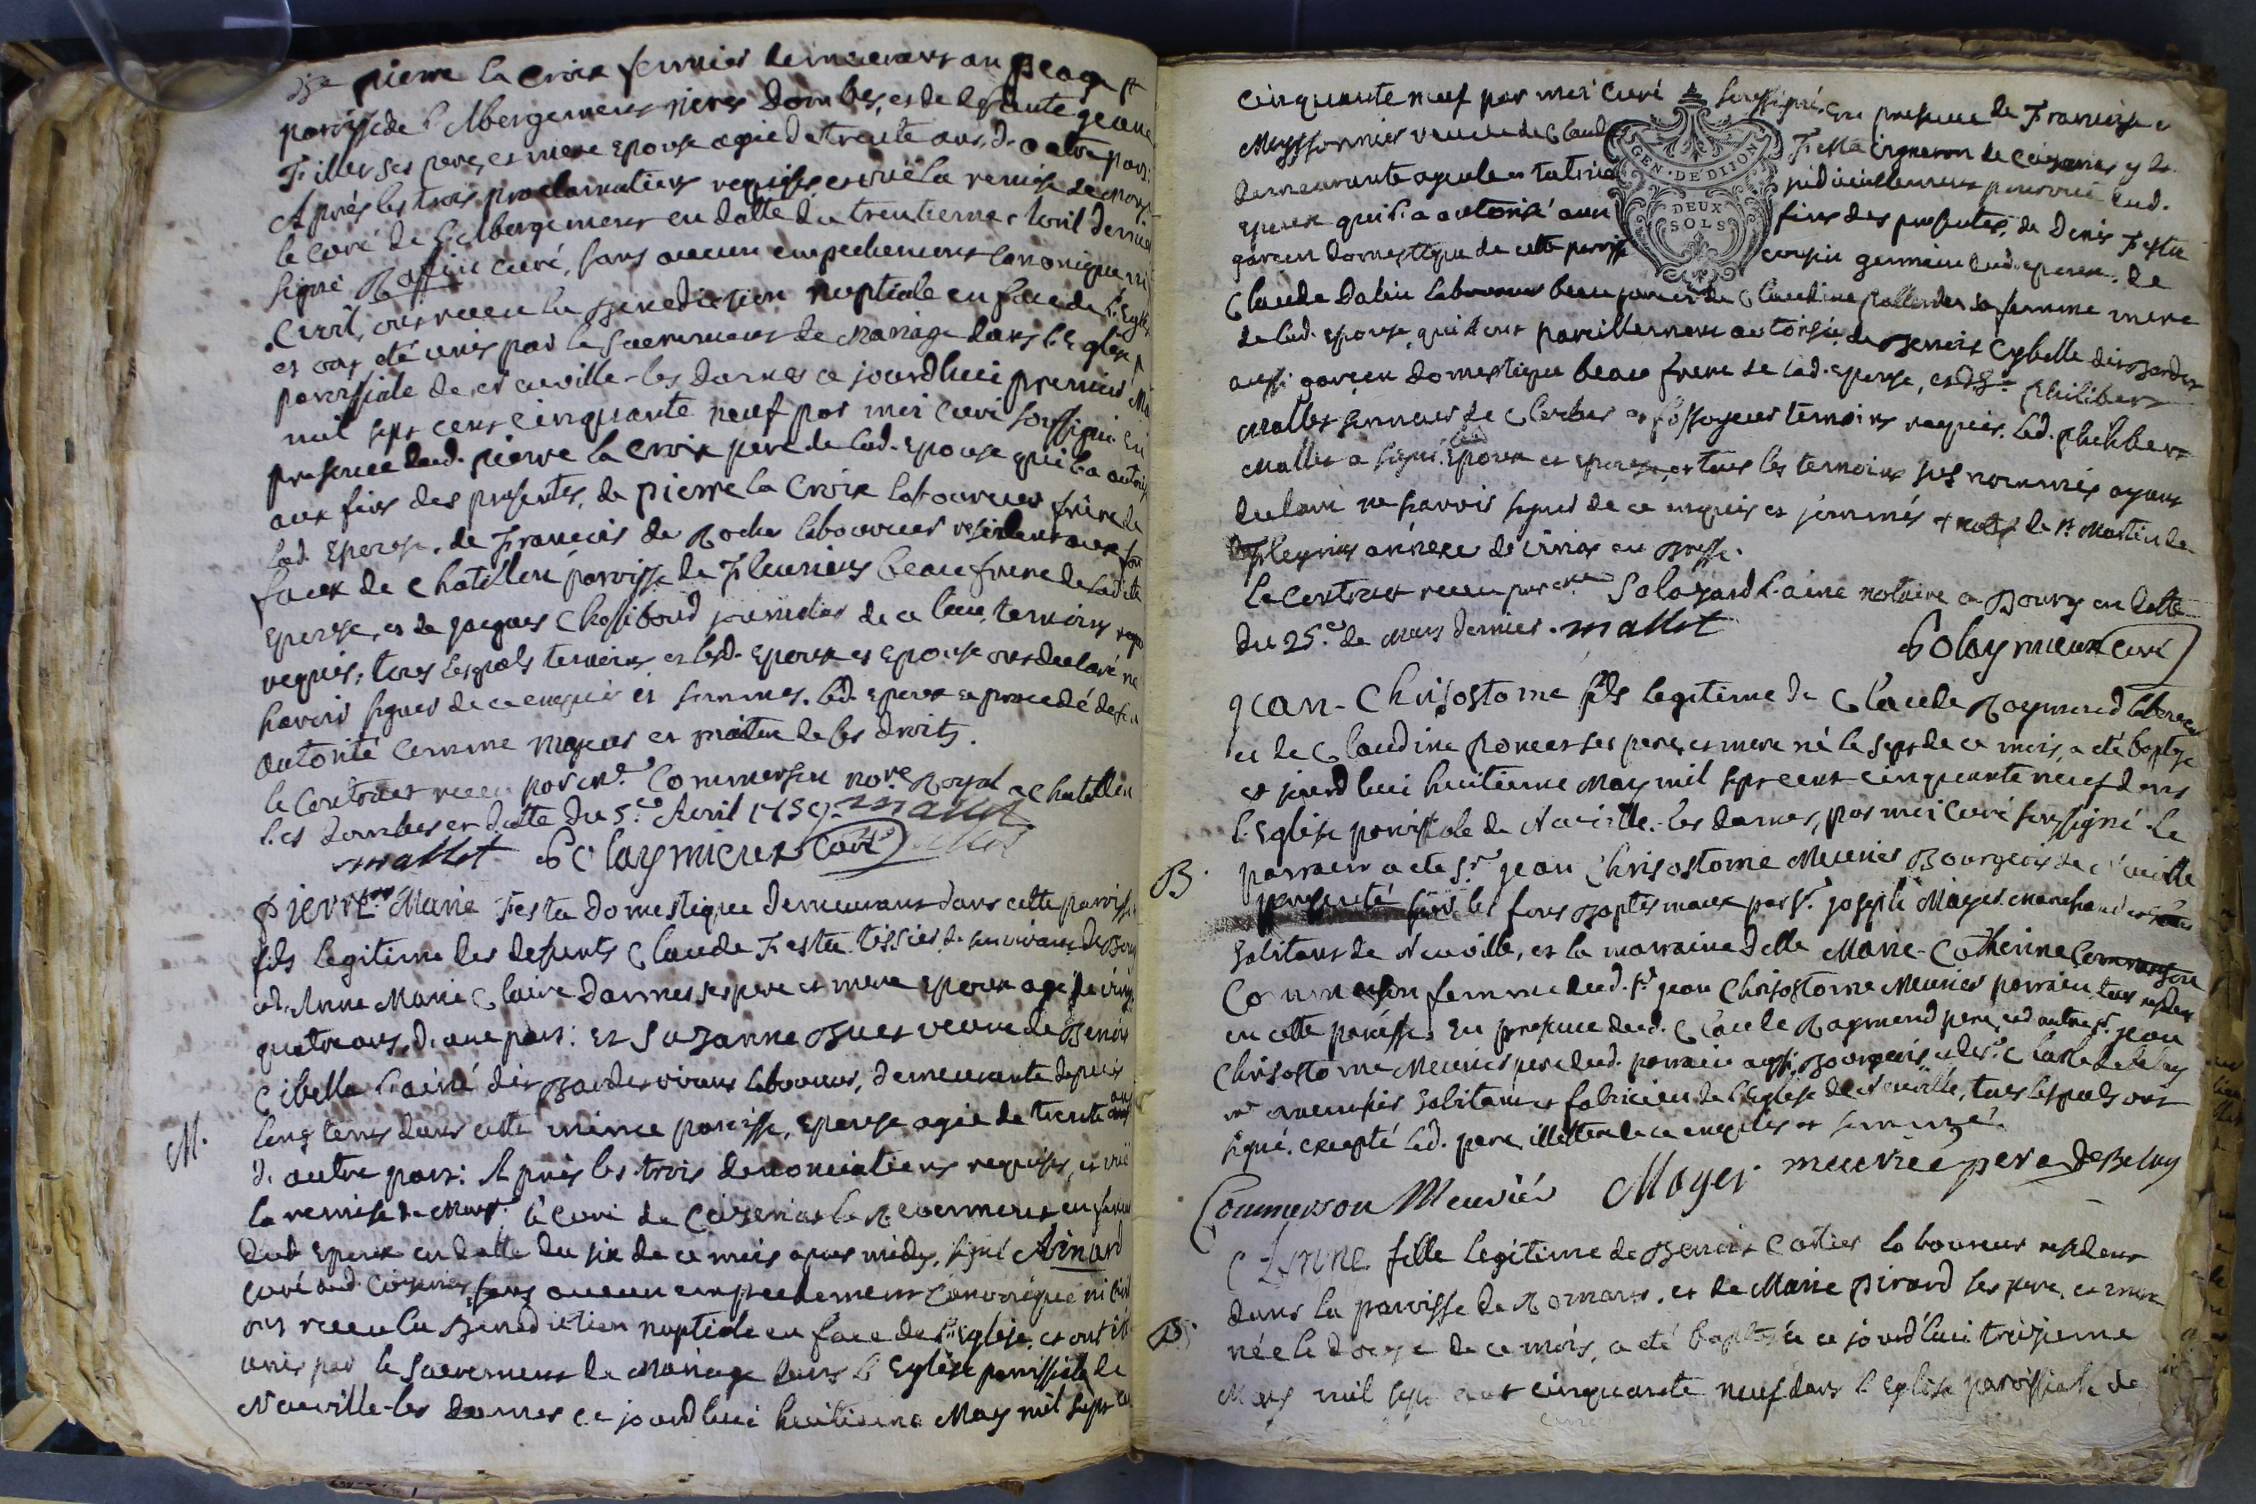 pierre la Croix fermier demeurant au peage
paroisse de l'Abergement dombes, et de defunte jeane
Filler ses pere, et mere epouse agée de trente ans, d'autre part:
Après les trois proclamations requises, et vüe la remise de
le curé de l'Abergement en datte du trentieme Avril dernier
signé Raffin curé, sans aucun empechement canonique ni
Civil, ont receu la Benediction nuptiale en face de l'Eglise
et ont été unis par le Sacrement de Mariage dans l'Eglise
paroissiale de Neuville-les dames ce jourdhui premier May
mil sept cent cinquante neuf par moi curé soussigné en
presence dud. pierre la croix pere de lad. Epouse qui l'a autorisé
aux fins des presentes, de pierre la Croix laboureur frere de
lad. Epouse, de François de Roche laboureur resident aux
faux de Chatillon paroisse de Fleurieux beau frere de ladite
Epouse, et de jacques Chossiboud journalier de ce lieu, temoins
requis, tous lesquels temoins et lesd. Epoux et Epouse ont declaré ne
scavoir signer de ce enquis et sommes. led. Epoux a procedé de son
autorité comme majeur et maitre de ses droits.
le Contract receu par Me. Commerson nore. Royal a Chatillon
les dombes en datte du 5.e Avril 1759. mallet
mallet Solaymieux Curé
Pierre Marie Festa domestique demeurant dans cette paroisse
fils legitime des defunts Claude Festa tissier de son vivant de
et d'Anne Marie Claire dannes ses pere et mere Epoux agé de vingt
quatre ans, d'une part: Et Suzanne Buet veuve de Benoit
Cibelle l'ainé dit Bardet vivant laboureur, demeurante depuis
M. longtems dans cette meme paroisse, Epouse agée de trente ans
d'autre part: Après les trois denonciations requises, et vüe
la remise de Monsr. le curé de Ceizeriat le Revermont en faveur
dud. Epoux en datte du six de ce mois apres midy, signé Arinard
curé aud. Ceizeriat, sans aucun empechement canonique ni civil
ont receu la Benediction nuptiale en face de l'Eglise, et ont été
unis par le Sacrement de Mariage dans l'Eglise paroissiale de
Neuville-les dames ce jourdhui huitieme May mil sept cent
cinquante neuf par moi Curé soussigné. En presence de Françoise
Meyssonnier veuve de Claude Festa vigneron de Ceizeriat y
demeurante ayeule et tutrice judiciellement pourvue dud.
Epoux qui l'a autorisé aux fins des presentes, de Denis Festa
garçon domestique de cette paroisse cousin germain dud. epoux, de
GEN. DE DIJON
DEUX
SOLS
Claude Dalin laboureur beau pere et de Claudine Pallordet sa femme mere
de lad. Epouse, qui l'ont pareillement autorisée, de Benoit Cybelle dit Bardet
aussi garçon domestique beau frere de lad. Epouse, et de Sr. Philibert
Mallet sonneur de cloches et fossoyeur temoins requis. led. philibert
Mallet a signé. led. Epoux et epouse, et tous les temoins sus nommés ayant
declaré ne scavoir signer de ce enquis et sommés + natif de st Martin de
Fleyriat annexe de viriat en Bresse.
Le contract receu par Me. Salazard l'ainé notaire a Bourg en datte
du 25.e de Mars dernier. mallet
Solaymieux curé
jean-Chrisostome fils legitime de Claude Raymond laboureur
et de Claudine Poncet ses pere, et mere né le sept de ce mois, a été baptisé
ce jourdhui huitieme May mil sept cent cinquante neuf dans
l'Eglise paroissiale de Neuville-les dames, par moi curé soussigné. le
B. parrain a eté Sr. jean Chrisostome Meunier Bourgeois de Neuville
presenté sur les fons Baptesmaux par Sr. joseph Mayet marchand
habitant de Neuville, et la marraine delle Marie-Catherine Commerson
Commerson femme dud. Sr. jean Chrisostome Meunier parrain, tous residens
en cette paroisse. En presence dud. Claude Raymond pere, et d'autre Sr. jean
Chrisostome Meunier pere dud. parrain aussi Bourgeois, et de Sr. Charle de Belay
me. menuisier habitant et fabricien de l'Eglise de Neuville, tous lesquels ont
signé. excepté led. pere illettré de ce enquis et sommé.
Commerson Meuniér Mayet meunier pere deBelay
Anne fille legitime de Benoit Cartier laboureur resident
dans la paroisse de Romans, et de Marie Pirard ses pere, et mere
B. née le douze de ce mois, a été baptisée ce jourd'hui treizieme
May mil sept cent cinquante neuf dans l'Eglise paroissiale de